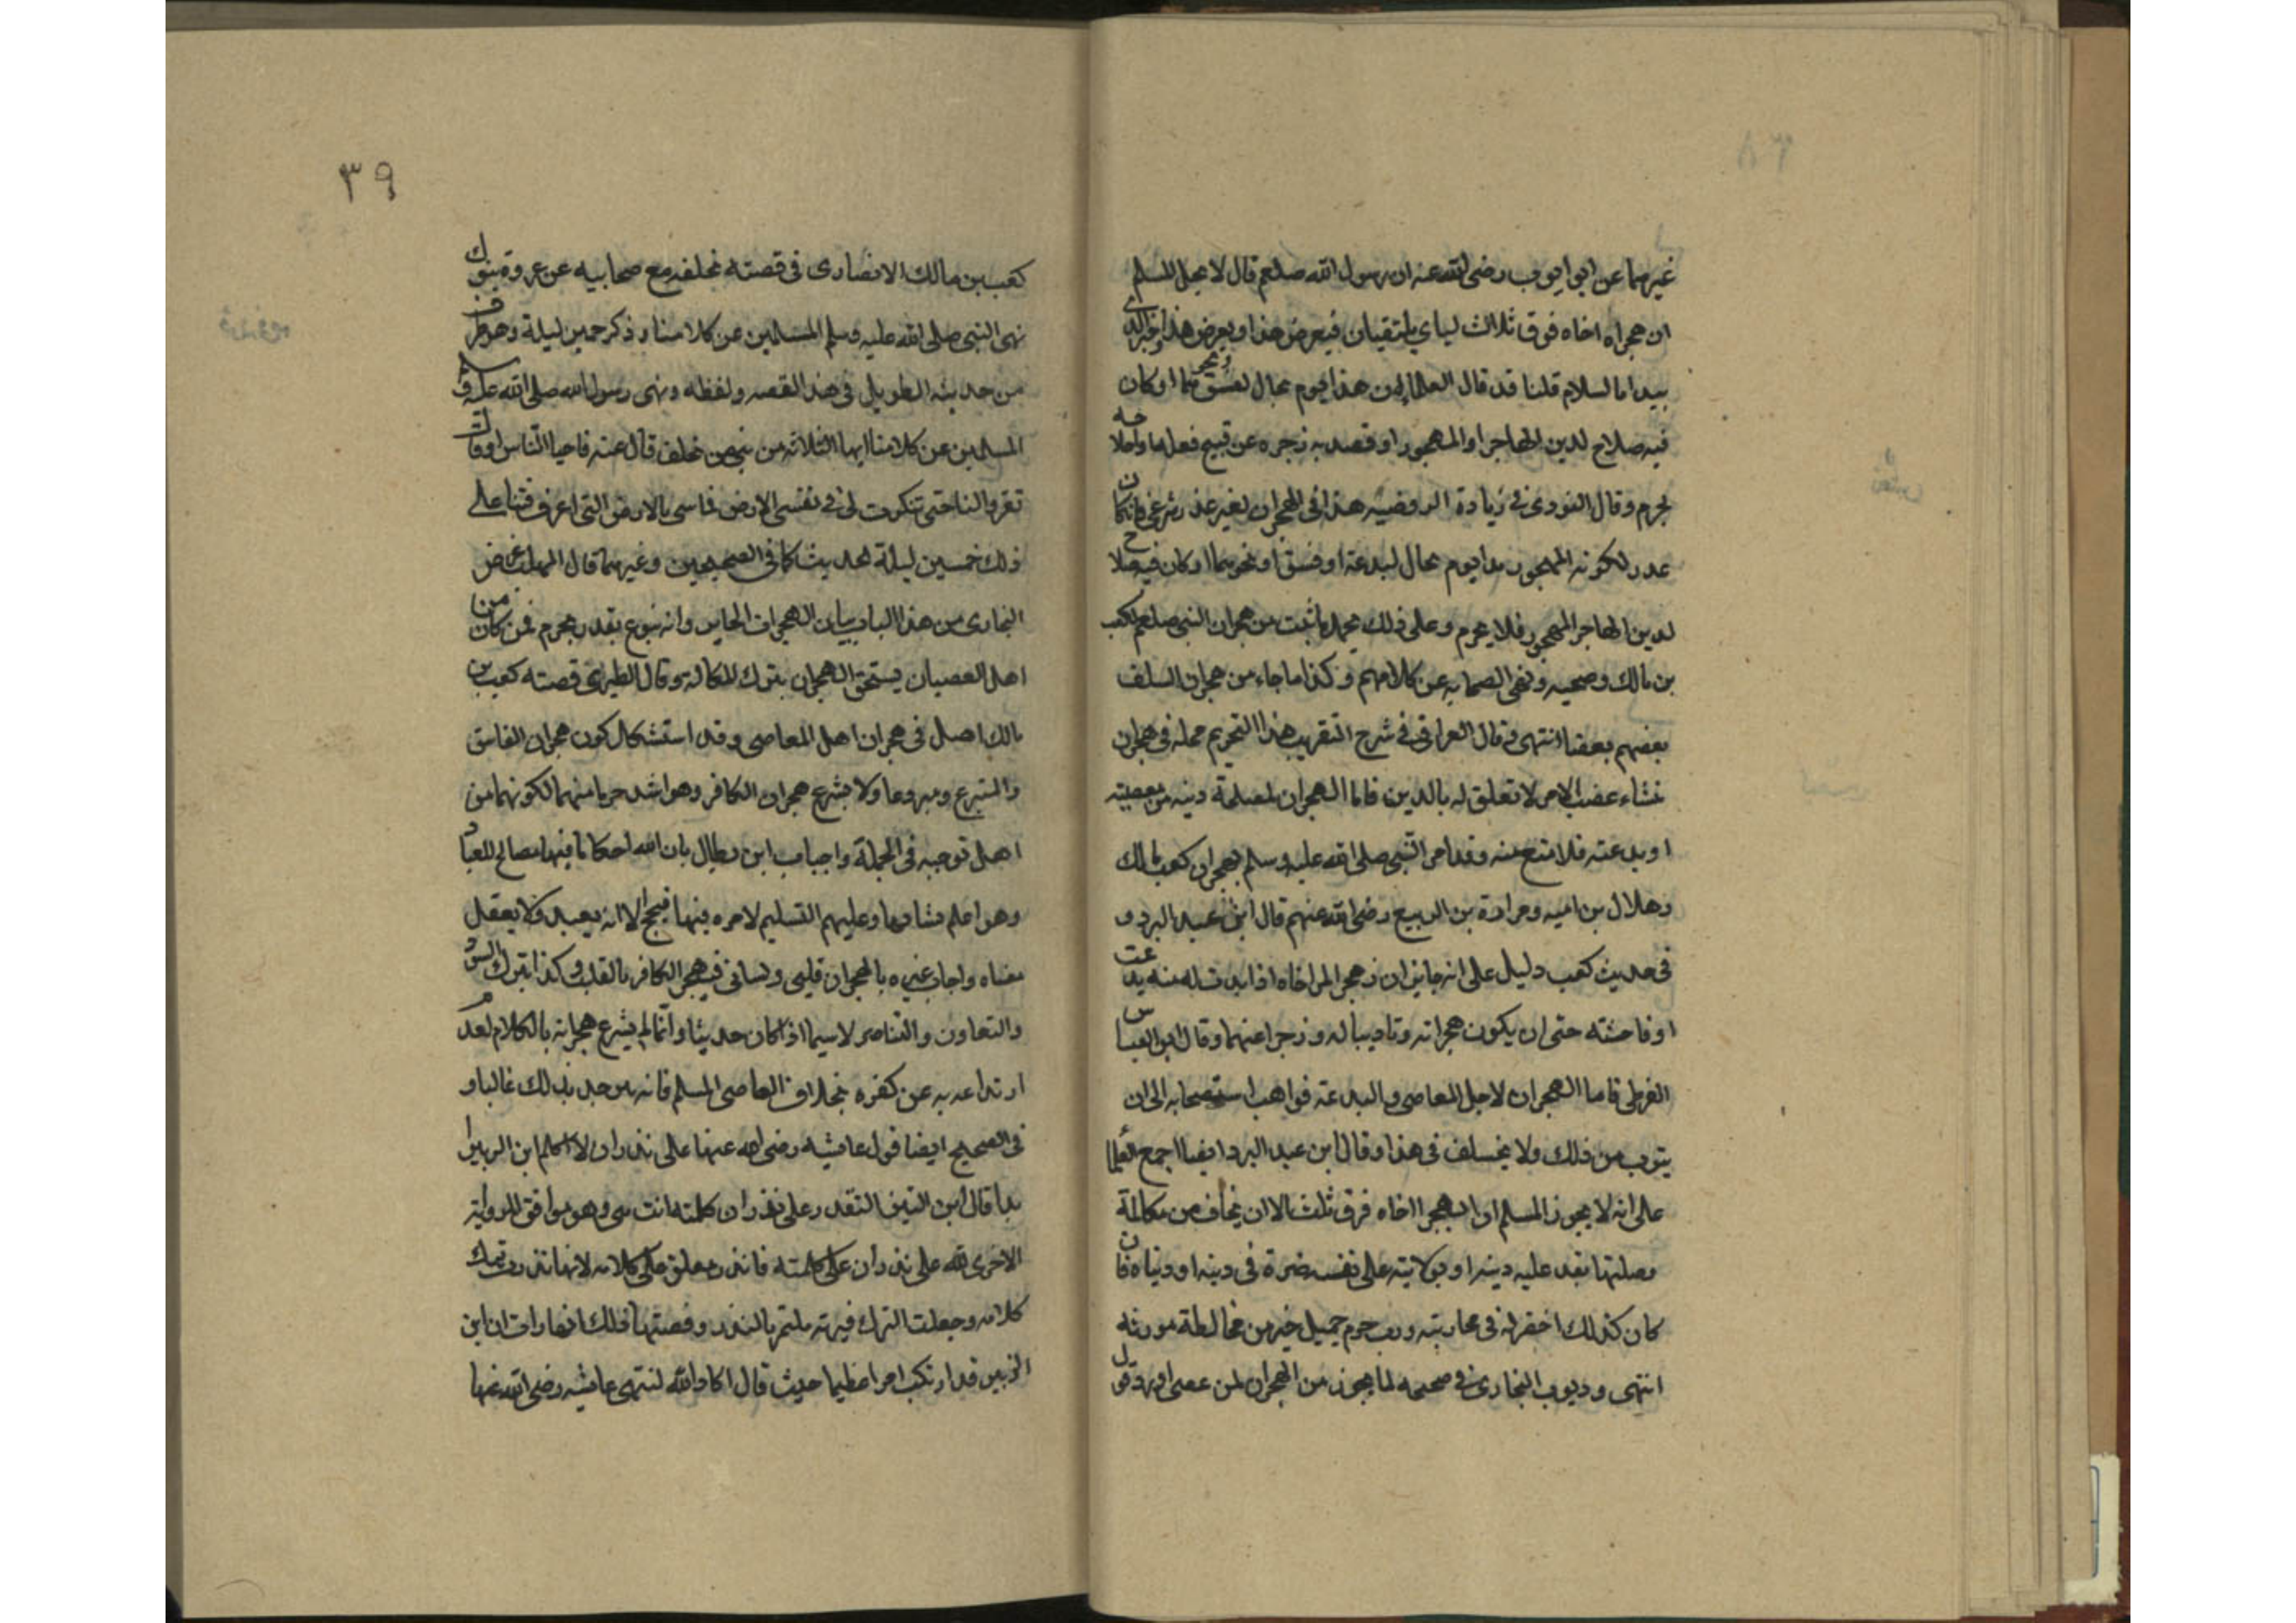 غيرهما عن ابي ايوب رضى الله عنه ان رسول الله صلعم قال لا يحل للمسلم
ان هجراه اخاه فوق ثلاث ليالي يلتقيان فيعرض هذا ويعرض هذا وخير الذي
يبدا بالسلام قلنا قد قال العلما ان هذا يوم بحال لفسق ونحوهما او كان
فيه صلاح لدين الهاجر او المهجور او قصد به زجره عن قبيح فعله
يحرم وقال النووى في زيادة الروضه هذا في الهجران لغير عذر شرعي فان كان
عذر لكونه المهجور بحال لبدعة او فسق او نحوهما او كان فيه صلاح
لدين الهاجر المهجور فلا يحرم وعلى ذلك يحمل ما ثبت من هجران النبى صلعم لكعب
بن مالك وصحبيه ونهى الصحابه عن كلامهم وكذا ما جاء من هجران السلف
بعضهم بعضا انتهى وقال العراقى في شرح التقريب هذا التحريم محله في هجران
نشاء عضب لامر لا تعلق له بالدين فاما الهجران لمصلحة دينيه من معصيته
او بدعته فلا منع منه وقد امر النبي صلى الله عليه وسلم بهجران كعب مالك
وهلال بن اميه ومرارة بن الربيع رضى الله عنهم قال ابن عبد البر و
فى حديث كعب دليل على انه جايز ان زهجر المر اخاه اذا بدت له منه بدعت
او فاحشته حتى ان يكون هجرانه وتاديبا له وزجرا عنهما وقال ابو العباس
القرطى فاما الهجران لاجل المعاصى والبدعته فواهب استصحابه الى ان
يتوب من ذلك ولا يختلف فى هذا وقال ابن عبد البر ايضا اجمع العلما
على انه لا يجوز المسلم ان الهجر اخاه فوق ثلث الا ان يخاف من مكالمة
وصلتها بفد عليه دينه او على نفسه ضرة فى دينه او دنياه فان
كان كذلك وفى مجانبته ورب حرم جميل خير من مخالطة موذيه
انتهى وبوب البخارى في صحيحه لما يجوز من الهجران لمن عصى
٣٩
كعب بن مالك الانصارى فى قصته تخلفه مع صحابيه عن غروة تبوك
نهى النبى صلى الله عليه وسلم المسلمين عن كلامنا وذكر خمسين ليلة وهو طرف
من حديثه الطويل فى هذا القصه ولفظه ونهى رسول الله صلى الله عليه وسلم
المسلمين عن كلامنا ايها الثلاثه من بين من تخلف قال عنه الناس او قالت
تغيروا لنا حتى تنكرت لى في نفسى الارض فما سى بالارض التى اعرف فلبثنا على
ذلك خمسين ليلة الحديث كما فى الصحيحين وغيرهما قال المهلب غرض
البخارى من هذا الباب بيان الهجران الجايز وانه ينوع بقدر بجرم فمن كان من
اهل العصيان يستحق الهجران بترك المكالمه وقال الطبرى قصته كعب بن
مالك اصل فى هجران اهل المعاصى وقد استشكل كون هجران الفاسق
والمبتدع ولا يشرع هجران الكافر وهو اشد جرما منهما لكونهما من
اهل توحيد فى الجملة واجاب ابن بطال بان الله احكاما فيها مصالح للعباد
وهو اعلم بشانها وعليهم التسليم لامره فيها فيجح الا انه يعبد لا يعقل
معناه واجاب غيره بالهجران قلبى ولسانى فهجر الكافر بالقلب وكذا بترك التودد
والتعاون والتناصر لاسيما اذا كان حربيا وانما لم يشرع هجرانه بالكلام لعدم
ارتداعه به عن كفره بخلاف العاصى المسلم فانه ينزجر بذلك غالبا و
فى الصحيح ايضا قول عايشه رضى الله عنها على نذر ان لا اكلم ابن الزبير
ابدا قال ابن التين التقدير على نذر ان كلمته وهو موافق للرواية
الاخرى لله على نذر ان كلمته فالنذر معلق على كلامه لانها نذرت ترك
كلامه وجعلت الترك ملتمر بالنذر وقصتها فى ذلك انها رات ان ابن
الزبير قد ارتكب امرا عظيما حيث قال اما والله لتنتهى عايشه رضى الله عنها